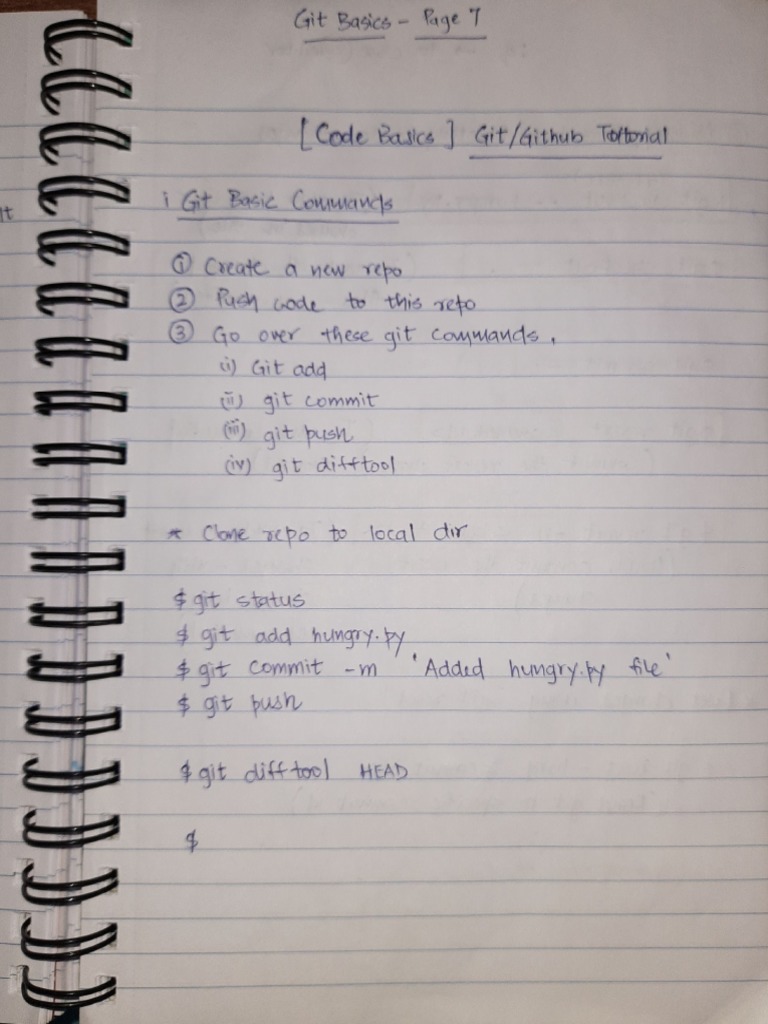 Git Basics - Page 7
[Code Basics] Git/Github Tutorial
i Git Basic Commands
① Create a new repo
② Push code to this repo
③ Go over these git commands.
(i) Git add
(ii) git commit
(iii) git push
(iv) git difftool
* Clone repo to local dir
$ git status
$ git add hungry.py
$ git commit -m 'Added hungry.py file'
$ git push
$ git difftool HEAD
$